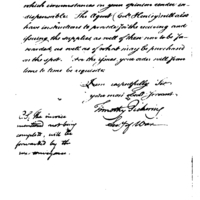 which circumstances in your opinion render in-
dispensable. The Agent (Col. Henley) will also
have instructions to provide for the receiving and
issuing, the supplies as well of them now to be for-
warded, as well as of what may be purchased
on the spot. for the Spies, you order will from
time to time be requisite.
I am respectfully Sir
your most Obedt. Servant
Timothy Pickering
Secy of War
P.S. The invoice
not being
complete, will be
forwarded by the
next conveyance.